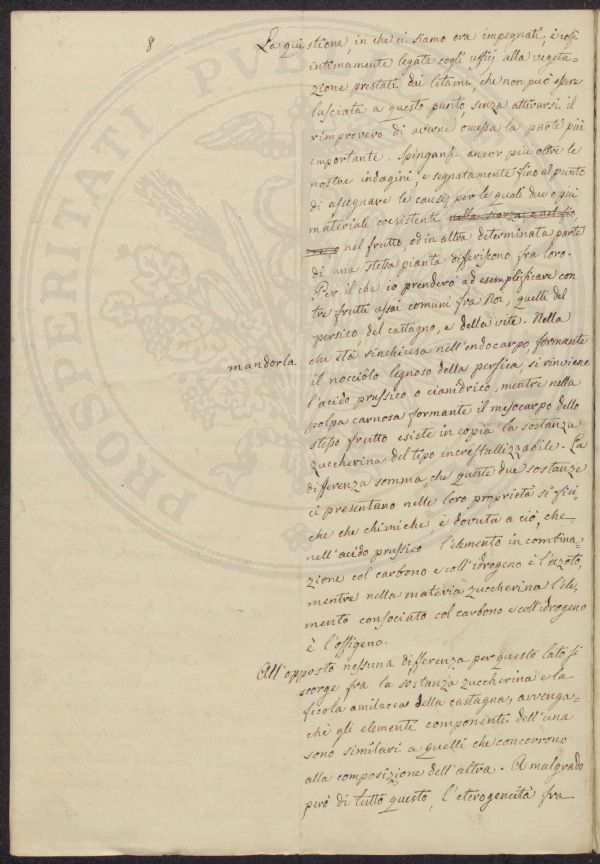 8
La quistione, in che ci siamo ora impegnati, è così
intimamente legata cogli ufficj alla vegeta=
zione prestati dai letami, che non può essere
lasciata a questo punto, senza attirarsi il
rimprovero di averne omessa la parte più
importante. Spingansi ancor più oltre le
nostre indagini, e segnatamente fino al punto
di assegnare le cause, per le quali due o più
materiale coesistente nella scorza, e nel fio=
re, o nel frutto, od in altra determinata parte
di una stessa pianta differiscono fra loro.
Per il che io prenderò ad esemplificare con
tre frutti assai comuni fra noi, quelli del
persico, del castagno, e della vite. Nella
mandorla
che sta rinchiusa nell'endocarpo, formante
il nocciòlo legnoso della persica, si rinviene
l'acido prussico o cianidrico, mentre nella
polpa carnosa formante il mesocarpo dello
stesso frutto esiste in copia la sostanza
zuccherina del tipo incristallizzabile. La
differenza somma, che queste due sostanze
ci presentano nelle loro proprietà sì fisi=
che che chimiche è dovuta a ciò, che
nell'acido prussico l'elemento in combina=
zione col carbono e coll'idrogeno è l'azoto,
mentre nella materia zuccherina l'ele=
mento consociato col carbono e coll'idrogeno
è l'ossigeno.
All'opposto nessuna differenza per questo lato si
scorge fra la sostanza zuccherina e la
fecola amilacea della castagna, avvenga=
chè gli elementi componenti dell'una
sono similari a quelli che concorrono
alla composizione dell'altra. A malgrado
però di tutto questo, l'eterogeneità fra
PROSPERITATI PUBL